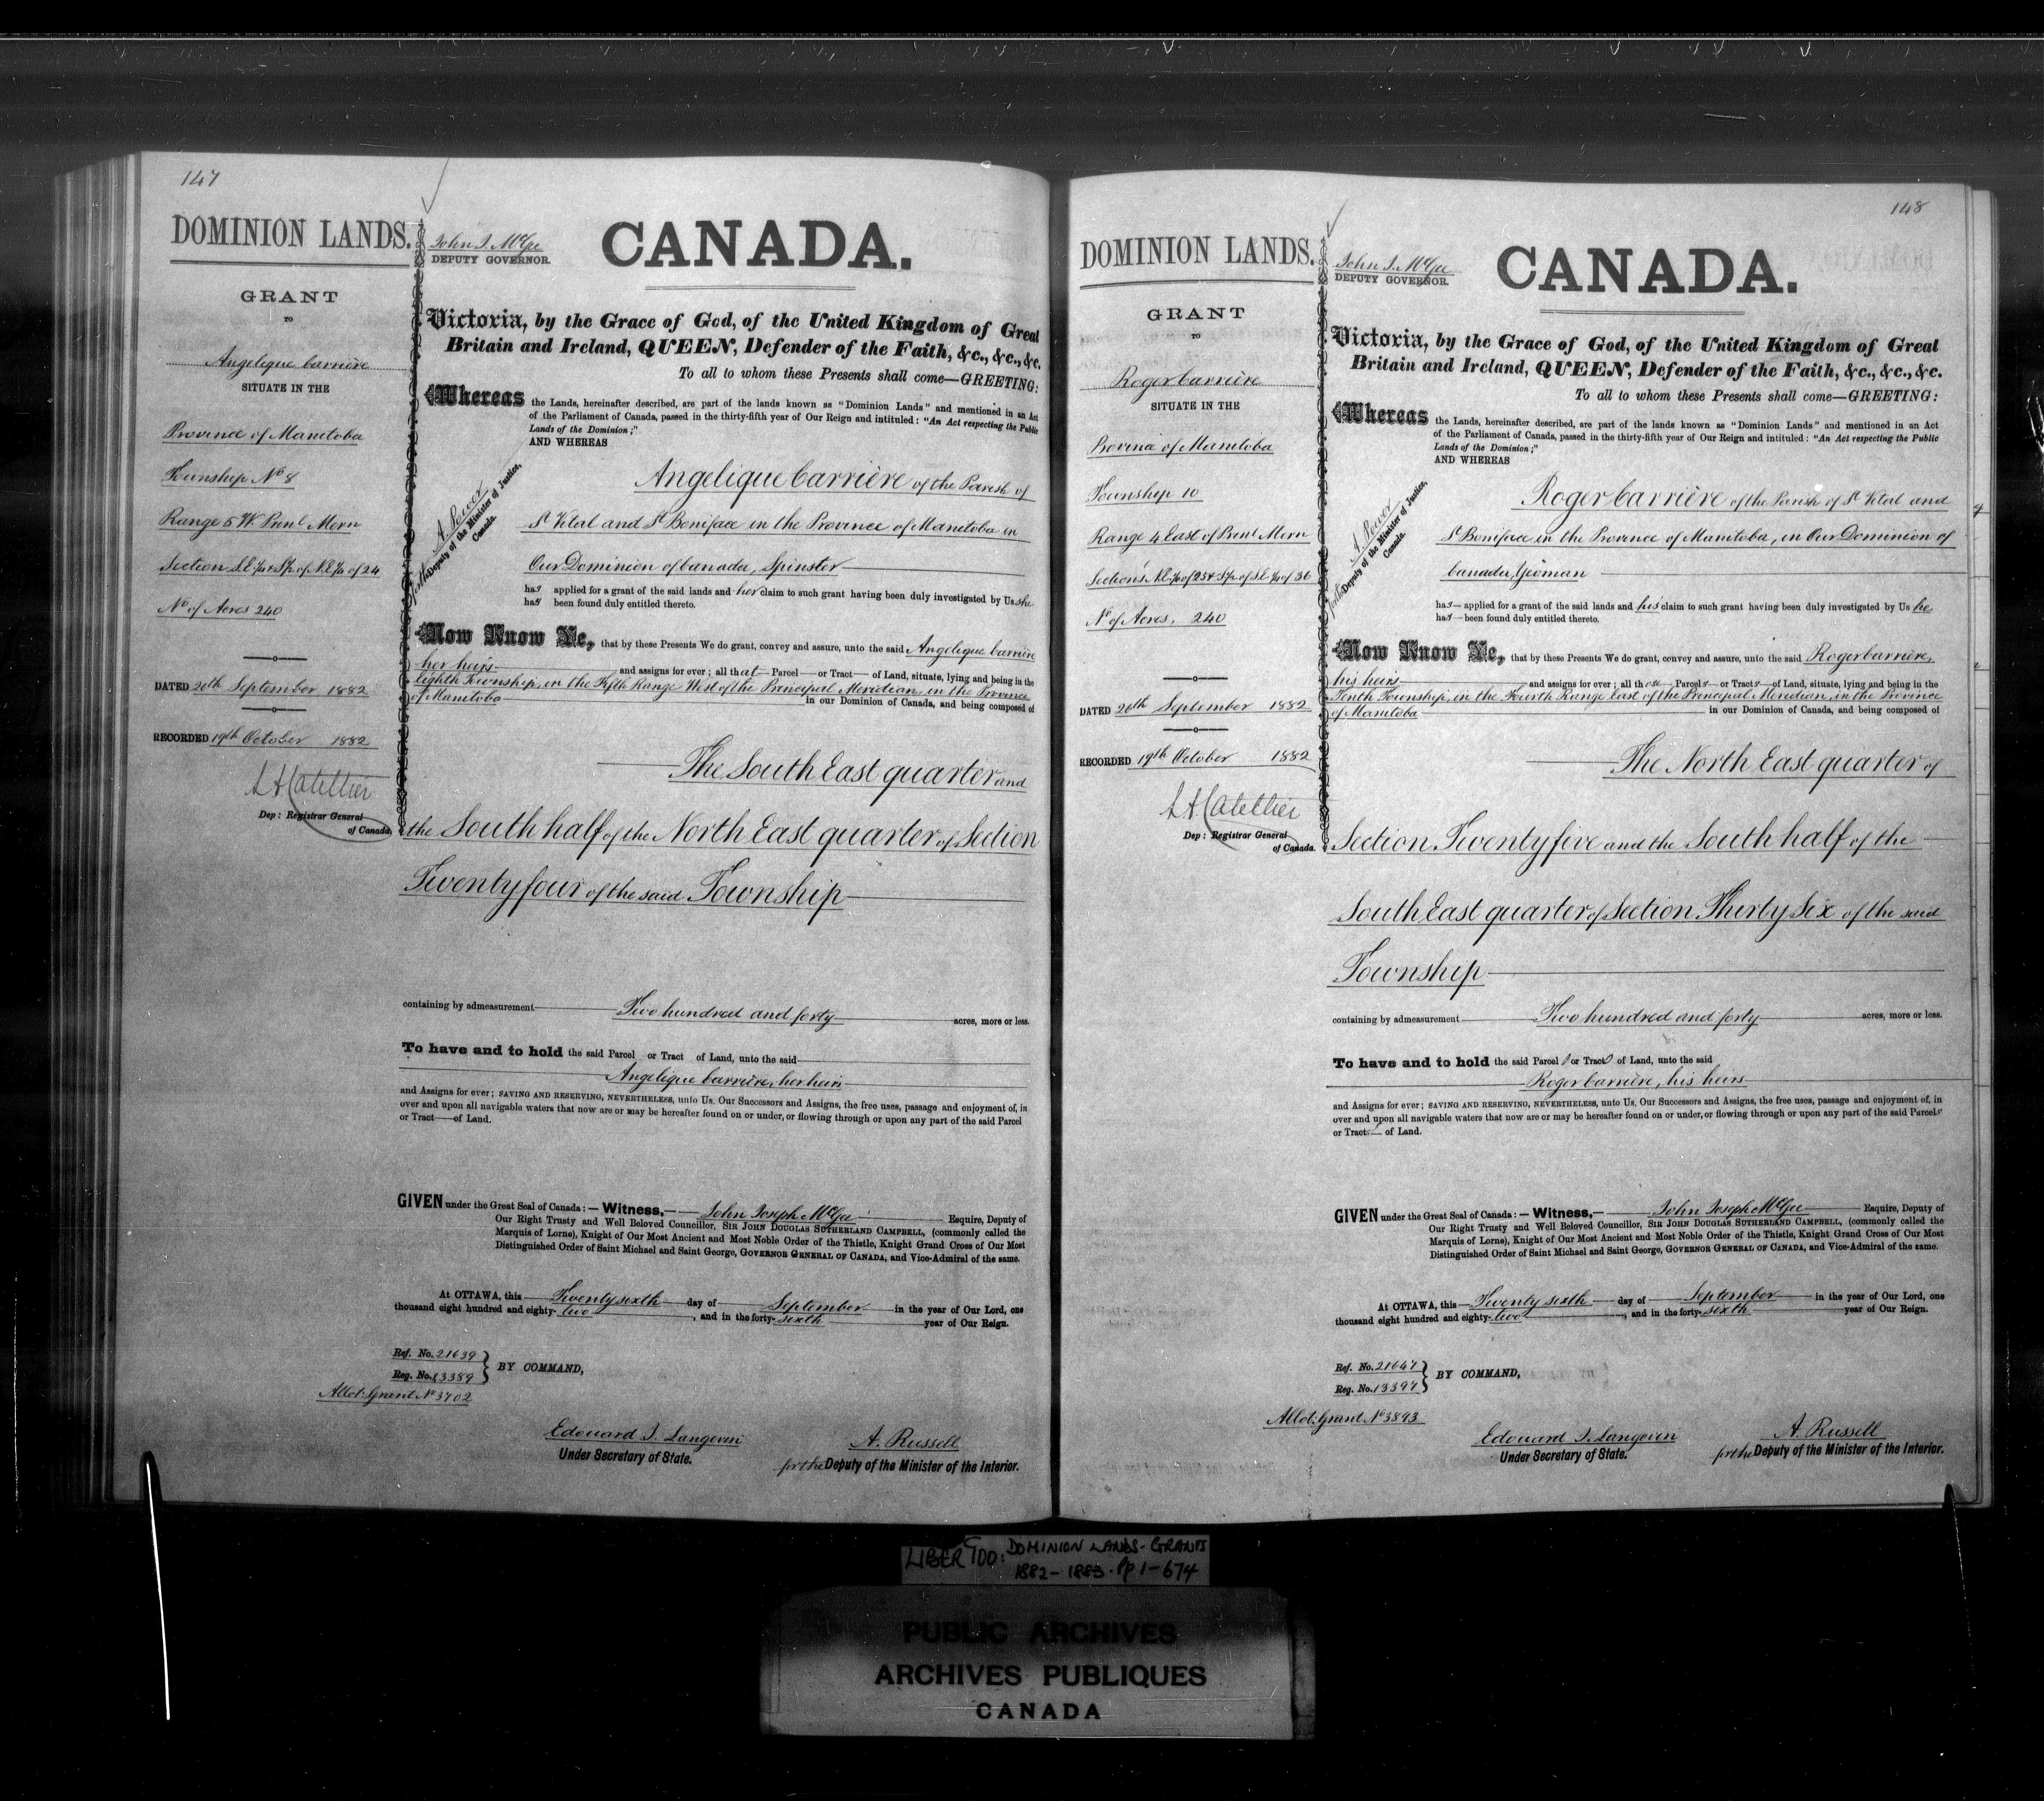 147
DOMINION LANDS.
GRANT
TO
Angelique Carrière
SITUATE IN THE
Province of Manitoba
Township No 8
Range 5 W Prinl Mern
Section S.E ¼ & S½ of N.E ¼ of 24
No of Acres 240
DATED 26th September 1882
RECORDED 19th October 1882
L A Catellier
Dep: Registrar General
of Canada.
John J. McGee
DEPUTY GOVERNOR.
CANADA.
Victoria, by the Grace of God, of the United Kingdom of Great
Britain and Ireland, QUEEN, Defender of the Faith, &c., &c., &c.
To all to whom these Presents shall come—GREETING:
Whereas the Lands, hereinafter described, are part of the lands known as "Dominion Lands" and mentioned in an Act
of the Parliament of Canada, passed in the thirty-fifth year of Our Reign and intituled: "An Act respecting the Public
Lands of the Dominion;"
AND WHEREAS
A. Power
for the Deputy of the Minister of Justice,
Canada.
Angelique Carrière of the Parish of
St Vital and St Boniface in the Province of Manitoba in
Our Dominion of Canada, Spinster
has applied for a grant of the said lands and her claim to such grant having been duly investigated by Us she
has been found duly entitled thereto.
Now Know Ye, that by these Presents We do grant, convey and assure, unto the said Angelique Carrière
her heirs and assigns for ever; all that Parcel or Tract of Land, situate, lying and being in the
Eighth Township, in the Fifth Range West of the Principal Meridian, in the Province
of Manitoba in our Dominion of Canada, and being composed of
The South East quarter and
the South half of the North East quarter of Section
Twenty four of the said Township
containing by admeasurement Two hundred and forty acres, more or less.
To have and to hold the said Parcel or Tract of Land, unto the said
Angelique Carrière, her heirs
and Assigns for ever; SAVING AND RESERVING, NEVERTHELESS, unto Us, Our Successors and Assigns, the free uses, passage and enjoyment of, in
over and upon all navigable waters that now are or may be hereafter found on or under, or flowing through or upon any part of the said Parcel
or Tract of Land.
GIVEN under the Great Seal of Canada:—Witness,— John Joseph McGee Esquire, Deputy of
Our Right Trusty and Well Beloved Councillor, SIR JOHN DOUGLAS SUTHERLAND CAMPBELL, (commonly called the
Marquis of Lorne), Knight of Our Most Ancient and Most Noble Order of the Thistle, Knight Grand Cross of Our Most
Distinguished Order of Saint Michael and Saint George, GOVERNOR GENERAL OF CANADA, and Vice-Admiral of the same.
At OTTAWA, this Twenty sixth day of September in the year of Our Lord, one
thousand eight hundred and eighty-two, and in the forty-sixth year of Our Reign.
Ref. No. 21639
Reg. No. 13389
BY COMMAND,
Allot: Grant No 3702
Edouard J. Langevin
Under Secretary of State.
A. Russell
for the Deputy of the Minister of the Interior.
148
DOMINION LANDS.
GRANT
TO
Roger Carrière
SITUATE IN THE
Province of Manitoba
Township 10
Range 4 East of Prinl Mern
Section's N.E. ¼ of 25 & S½ of S.E. ¼ of 36
No of Acres. 240
DATED 26th September 1882
RECORDED 19th October 1882
L A Catellier
Dep: Registrar General
of Canada.
John J. McGee
DEPUTY GOVERNOR.
CANADA.
Victoria, by the Grace of God, of the United Kingdom of Great
Britain and Ireland, QUEEN, Defender of the Faith, &c., &c., &c.
To all to whom these Presents shall come—GREETING:
Whereas the Lands, hereinafter described, are part of the lands known as "Dominion Lands" and mentioned in an Act
of the Parliament of Canada, passed in the thirty-fifth year of Our Reign and intituled: "An Act respecting the Public
Lands of the Dominion;"
AND WHEREAS
A. Power
for the Deputy of the Minister of Justice,
Canada.
Roger Carrière of the Parish of St Vital and
St Boniface in the Province of Manitoba, in Our Dominion of
Canada, Yeoman
has applied for a grant of the said lands and his claim to such grant having been duly investigated by Us he
has been found duly entitled thereto.
Now Know Ye, that by these Presents We do grant, convey and assure, unto the said Roger Carrière,
his heirs and assigns for ever; all those Parcels or Tracts of Land, situate, lying and being in the
Tenth Township, in the Fourth Range East of the Principal Meridian, in the Province
of Manitoba in our Dominion of Canada, and being composed of
The North East quarter of
Section Twenty five and the South half of the
South East quarter of Section Thirty Six of the said
Township
containing by admeasurement Two hundred and forty acres, more or less.
To have and to hold the said Parcels or Tracts of Land, unto the said
Roger Carrière, his heirs
and Assigns for ever; SAVING AND RESERVING, NEVERTHELESS, unto Us, Our Successors and Assigns, the free uses, passage and enjoyment of, in
over and upon all navigable waters that now are or may be hereafter found on or under, or flowing through or upon any part of the said Parcels
or Tracts of Land.
GIVEN under the Great Seal of Canada:—Witness,— John Joseph McGee Esquire, Deputy of
Our Right Trusty and Well Beloved Councillor, SIR JOHN DOUGLAS SUTHERLAND CAMPBELL, (commonly called the
Marquis of Lorne), Knight of Our Most Ancient and Most Noble Order of the Thistle, Knight Grand Cross of Our Most
Distinguished Order of Saint Michael and Saint George, GOVERNOR GENERAL OF CANADA, and Vice-Admiral of the same.
At OTTAWA, this Twenty sixth day of September in the year of Our Lord, one
thousand eight hundred and eighty-two, and in the forty-sixth year of Our Reign.
Ref. No. 21647
Reg. No. 13397
BY COMMAND,
Allot: Grant No 3893
Edouard J. Langevin
Under Secretary of State.
A. Russell
for the Deputy of the Minister of the Interior.
LIBER 100: DOMINION LANDS - GRANTS
1882 - 1883. Pp 1-674
PUBLIC ARCHIVES
ARCHIVES PUBLIQUES
CANADA